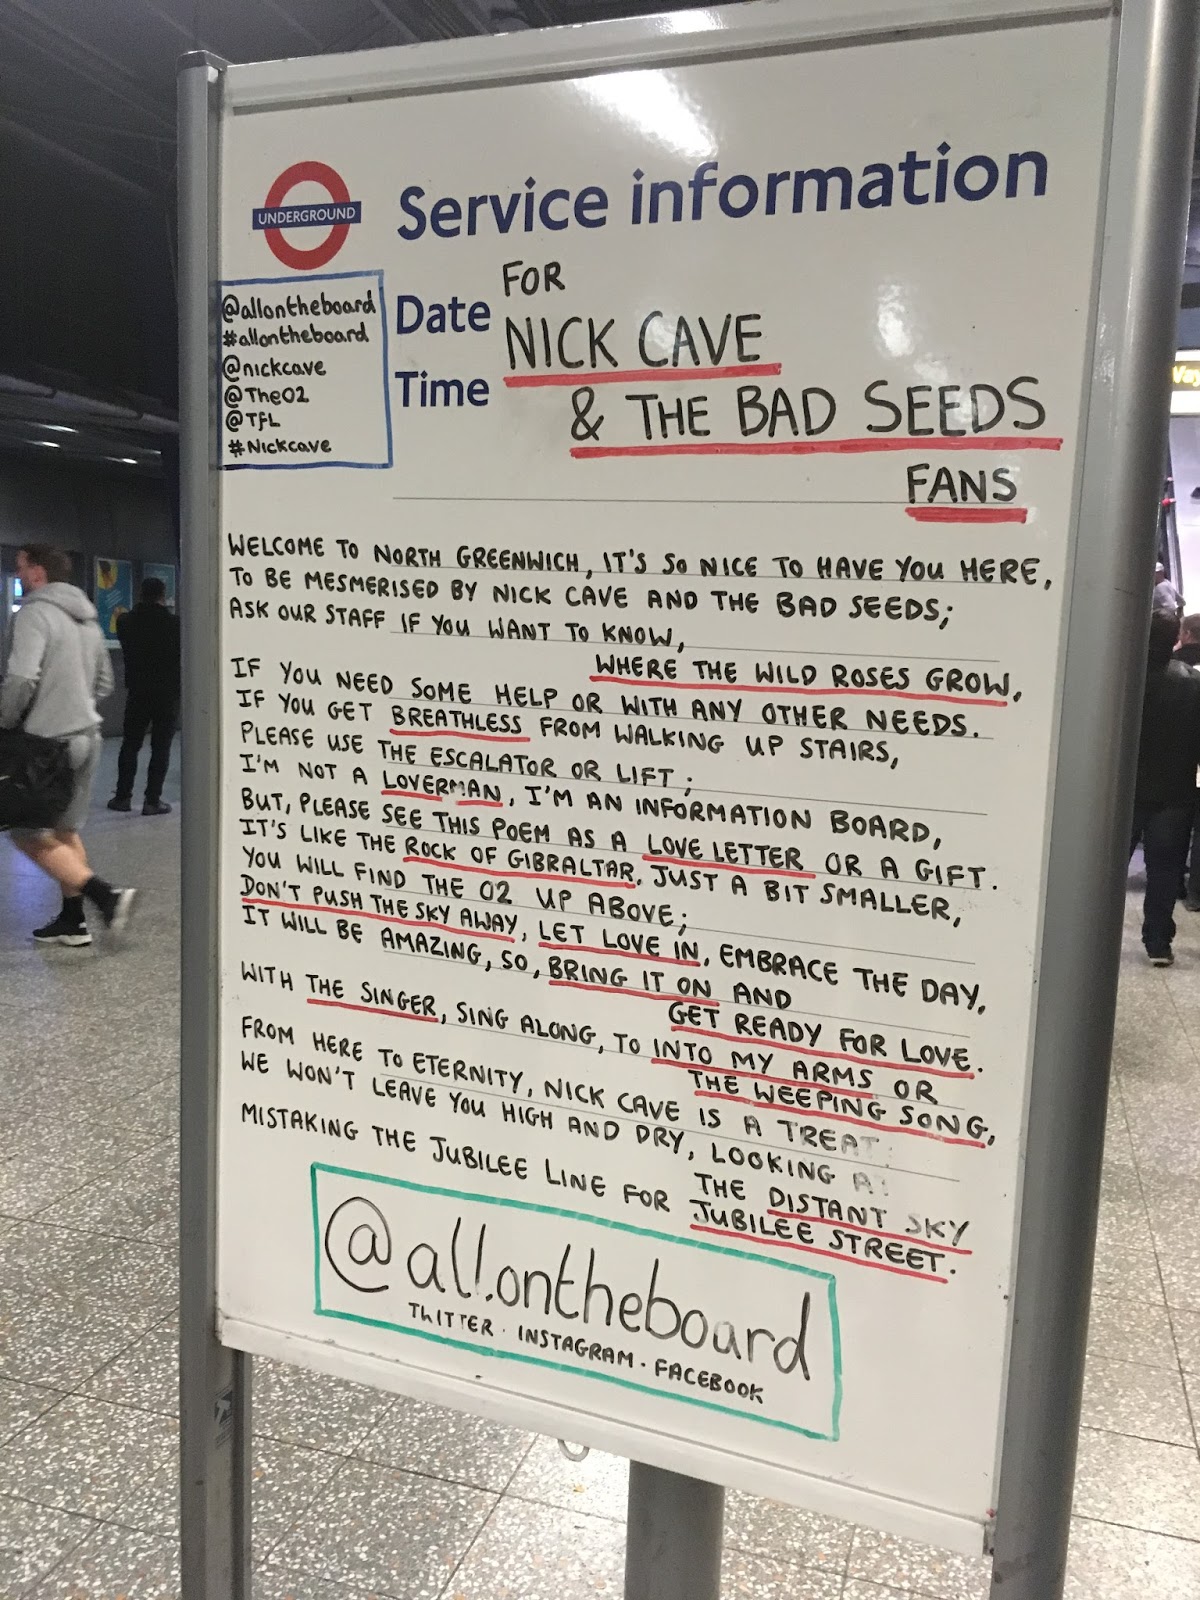 UNDERGROUND
Service information
@allontheboard
#allontheboard
@nickcave
@TheO2
@TfL
#Nickcave
Date
Time
FOR
NICK CAVE
& THE BAD SEEDS
FANS
WELCOME TO NORTH GREENWICH, IT'S SO NICE TO HAVE YOU HERE,
TO BE MESMERISED BY NICK CAVE AND THE BAD SEEDS;
ASK OUR STAFF IF YOU WANT TO KNOW,
WHERE THE WILD ROSES GROW,
IF YOU NEED SOME HELP OR WITH ANY OTHER NEEDS.
IF YOU GET BREATHLESS FROM WALKING UP STAIRS,
PLEASE USE THE ESCALATOR OR LIFT;
I'M NOT A LOVERMAN, I'M AN INFORMATION BOARD,
BUT, PLEASE SEE THIS POEM AS A LOVE LETTER OR A GIFT.
IT'S LIKE THE ROCK OF GIBRALTAR, JUST A BIT SMALLER,
YOU WILL FIND THE O2 UP ABOVE;
DON'T PUSH THE SKY AWAY, LET LOVE IN, EMBRACE THE DAY,
IT WILL BE AMAZING, SO, BRING IT ON AND
GET READY FOR LOVE.
WITH THE SINGER, SING ALONG, TO INTO MY ARMS OR
THE WEEPING SONG,
FROM HERE TO ETERNITY, NICK CAVE IS A TREAT;
WE WON'T LEAVE YOU HIGH AND DRY, LOOKING
THE DISTANT SKY
MISTAKING THE JUBILEE LINE FOR JUBILEE STREET.
@allontheboard
TWITTER · INSTAGRAM · FACEBOOK